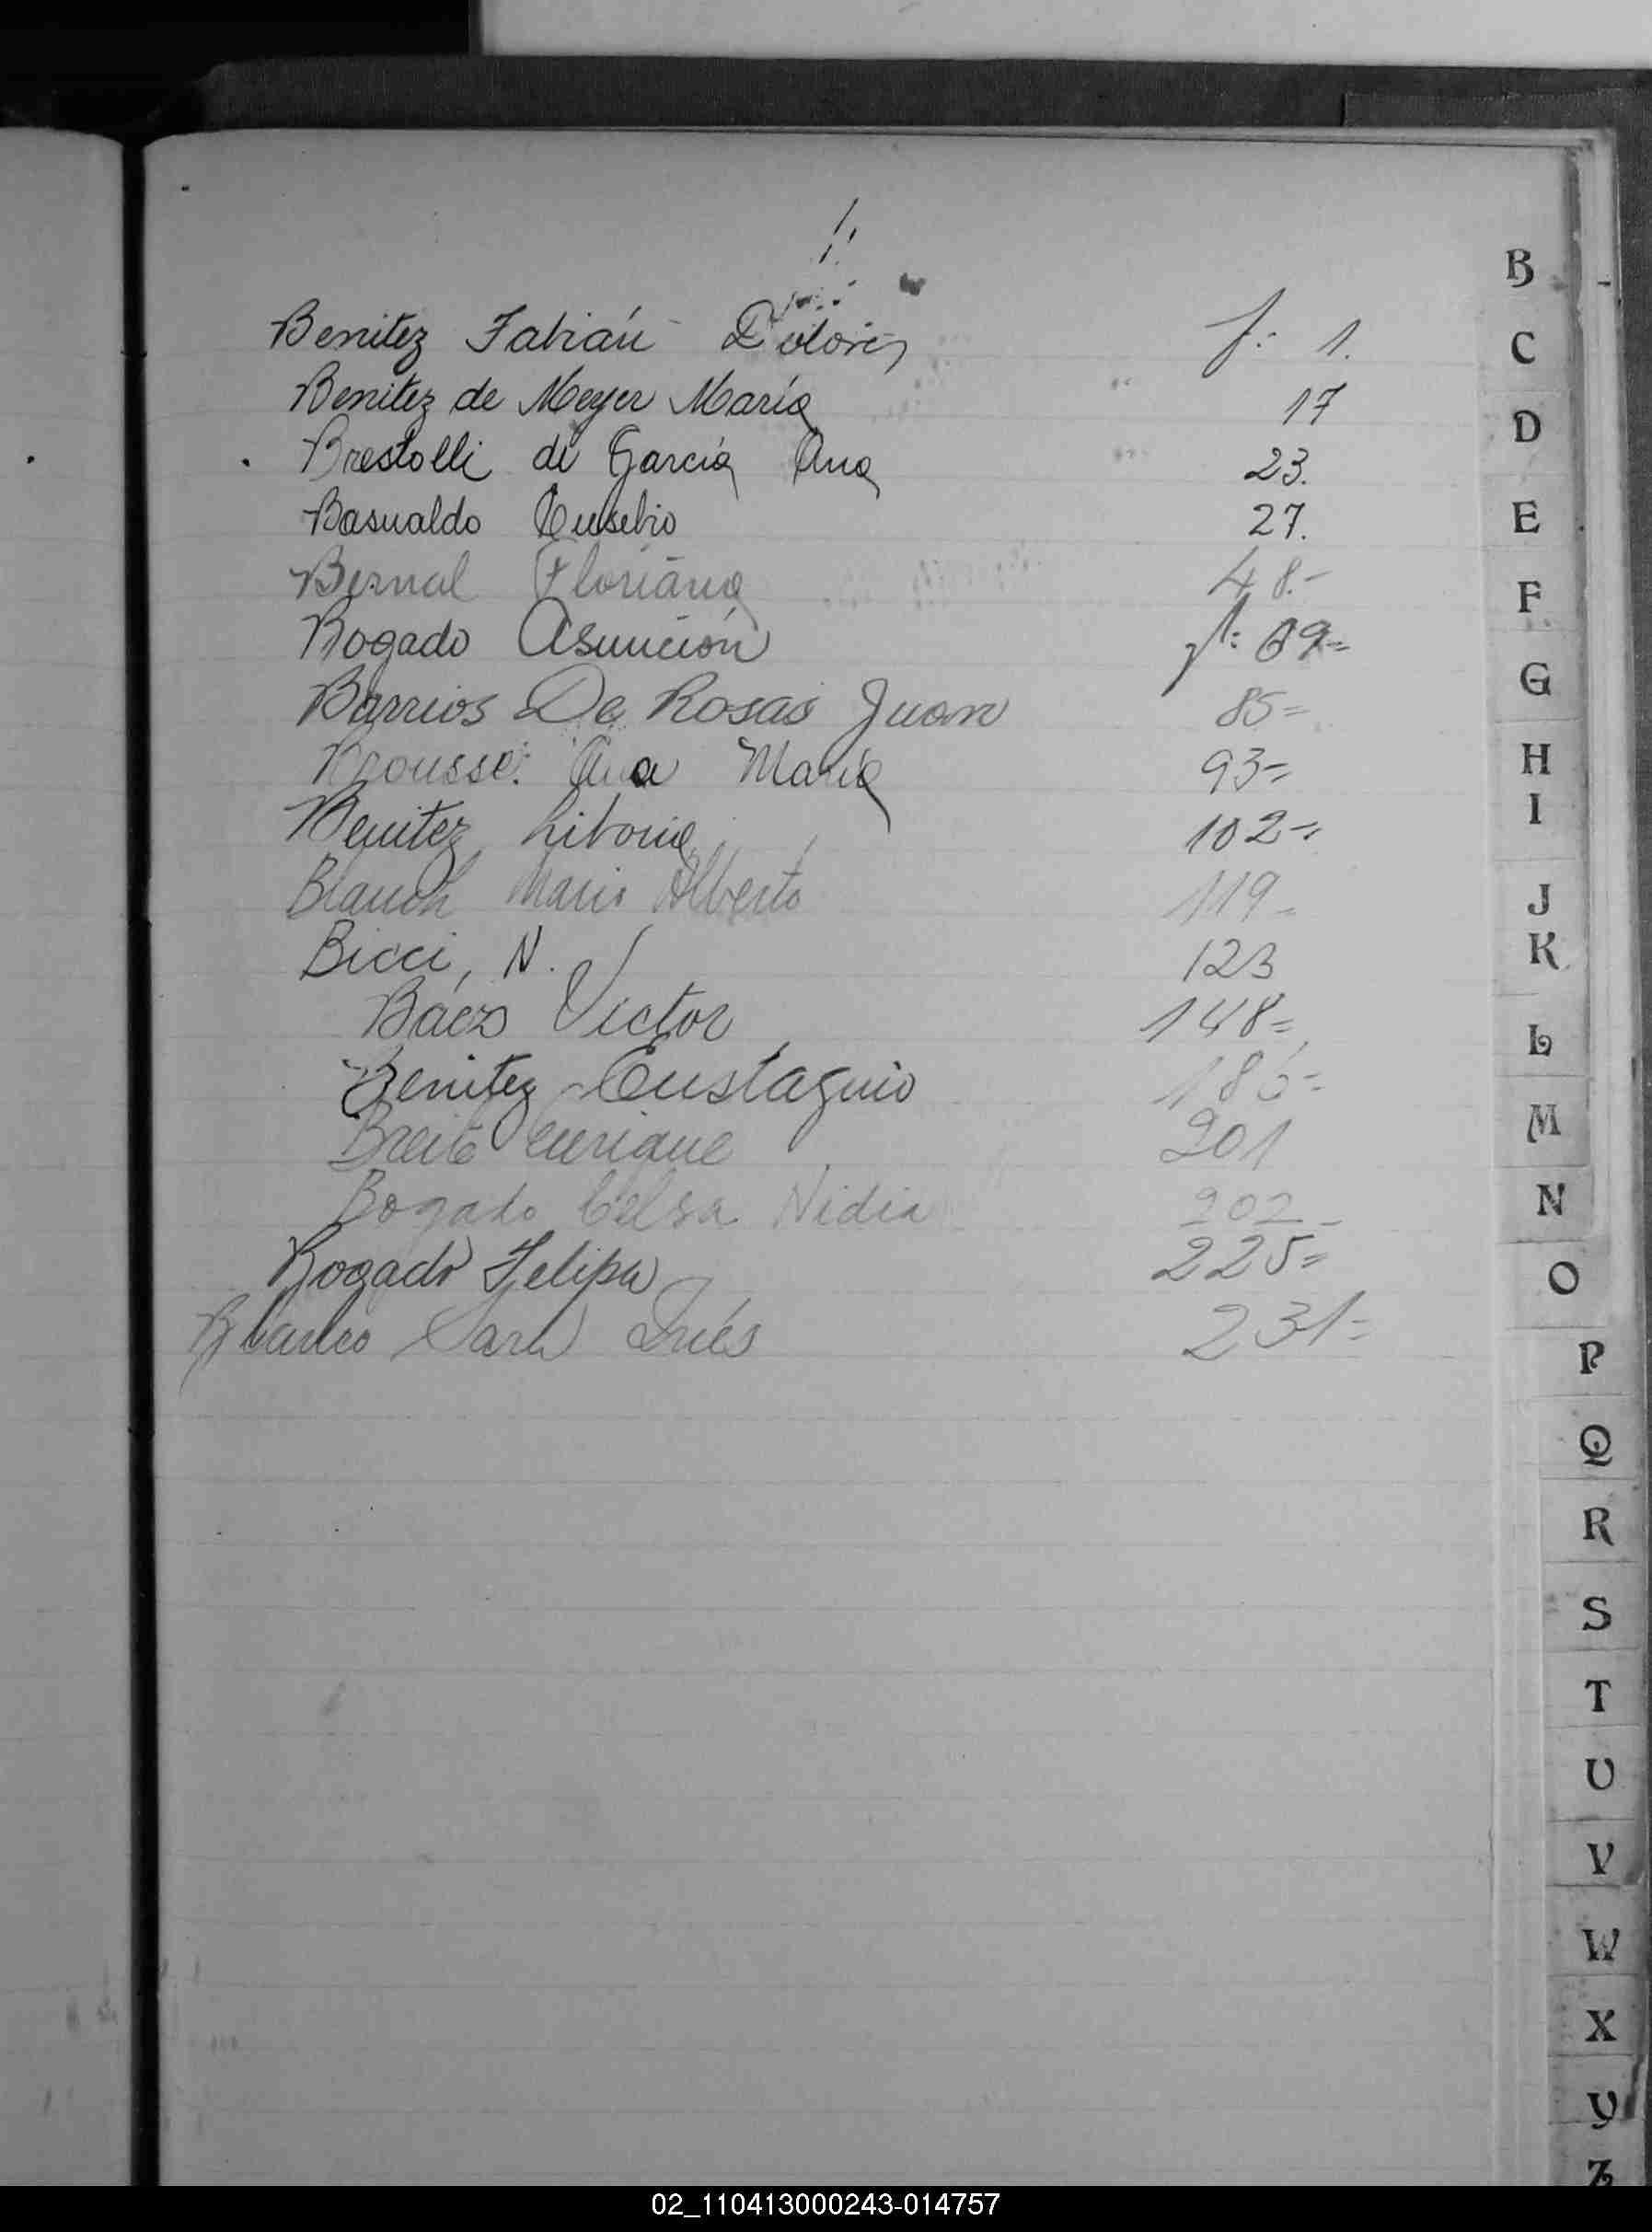 Benitez Fabián Dolores f: 1.
Benitez de Meyer María 17
Brestolli de García Ana 23.
Basualdo Eusebio 27.
Bernal Floriana 48.-
Bogado Asunción f: 69=
Barrios De Rosas Juan 85=
Brousse: Ana María 93=
Benitez Liboria 102=
Blanch Mario Alberto 119-
Bicci, N. 123
Báez Victor 148=
Benitez Eustaquio
Enrique 201
Bogado Celsa Nidia 202-
Bogado Felipa 225=
Blanco Sara Inés 231=
B
C
D
E
F
G
H
I
J
K
L
M
N
O
P
Q
R
S
T
U
V
W
X
Y
Z
02_110413000243-014757